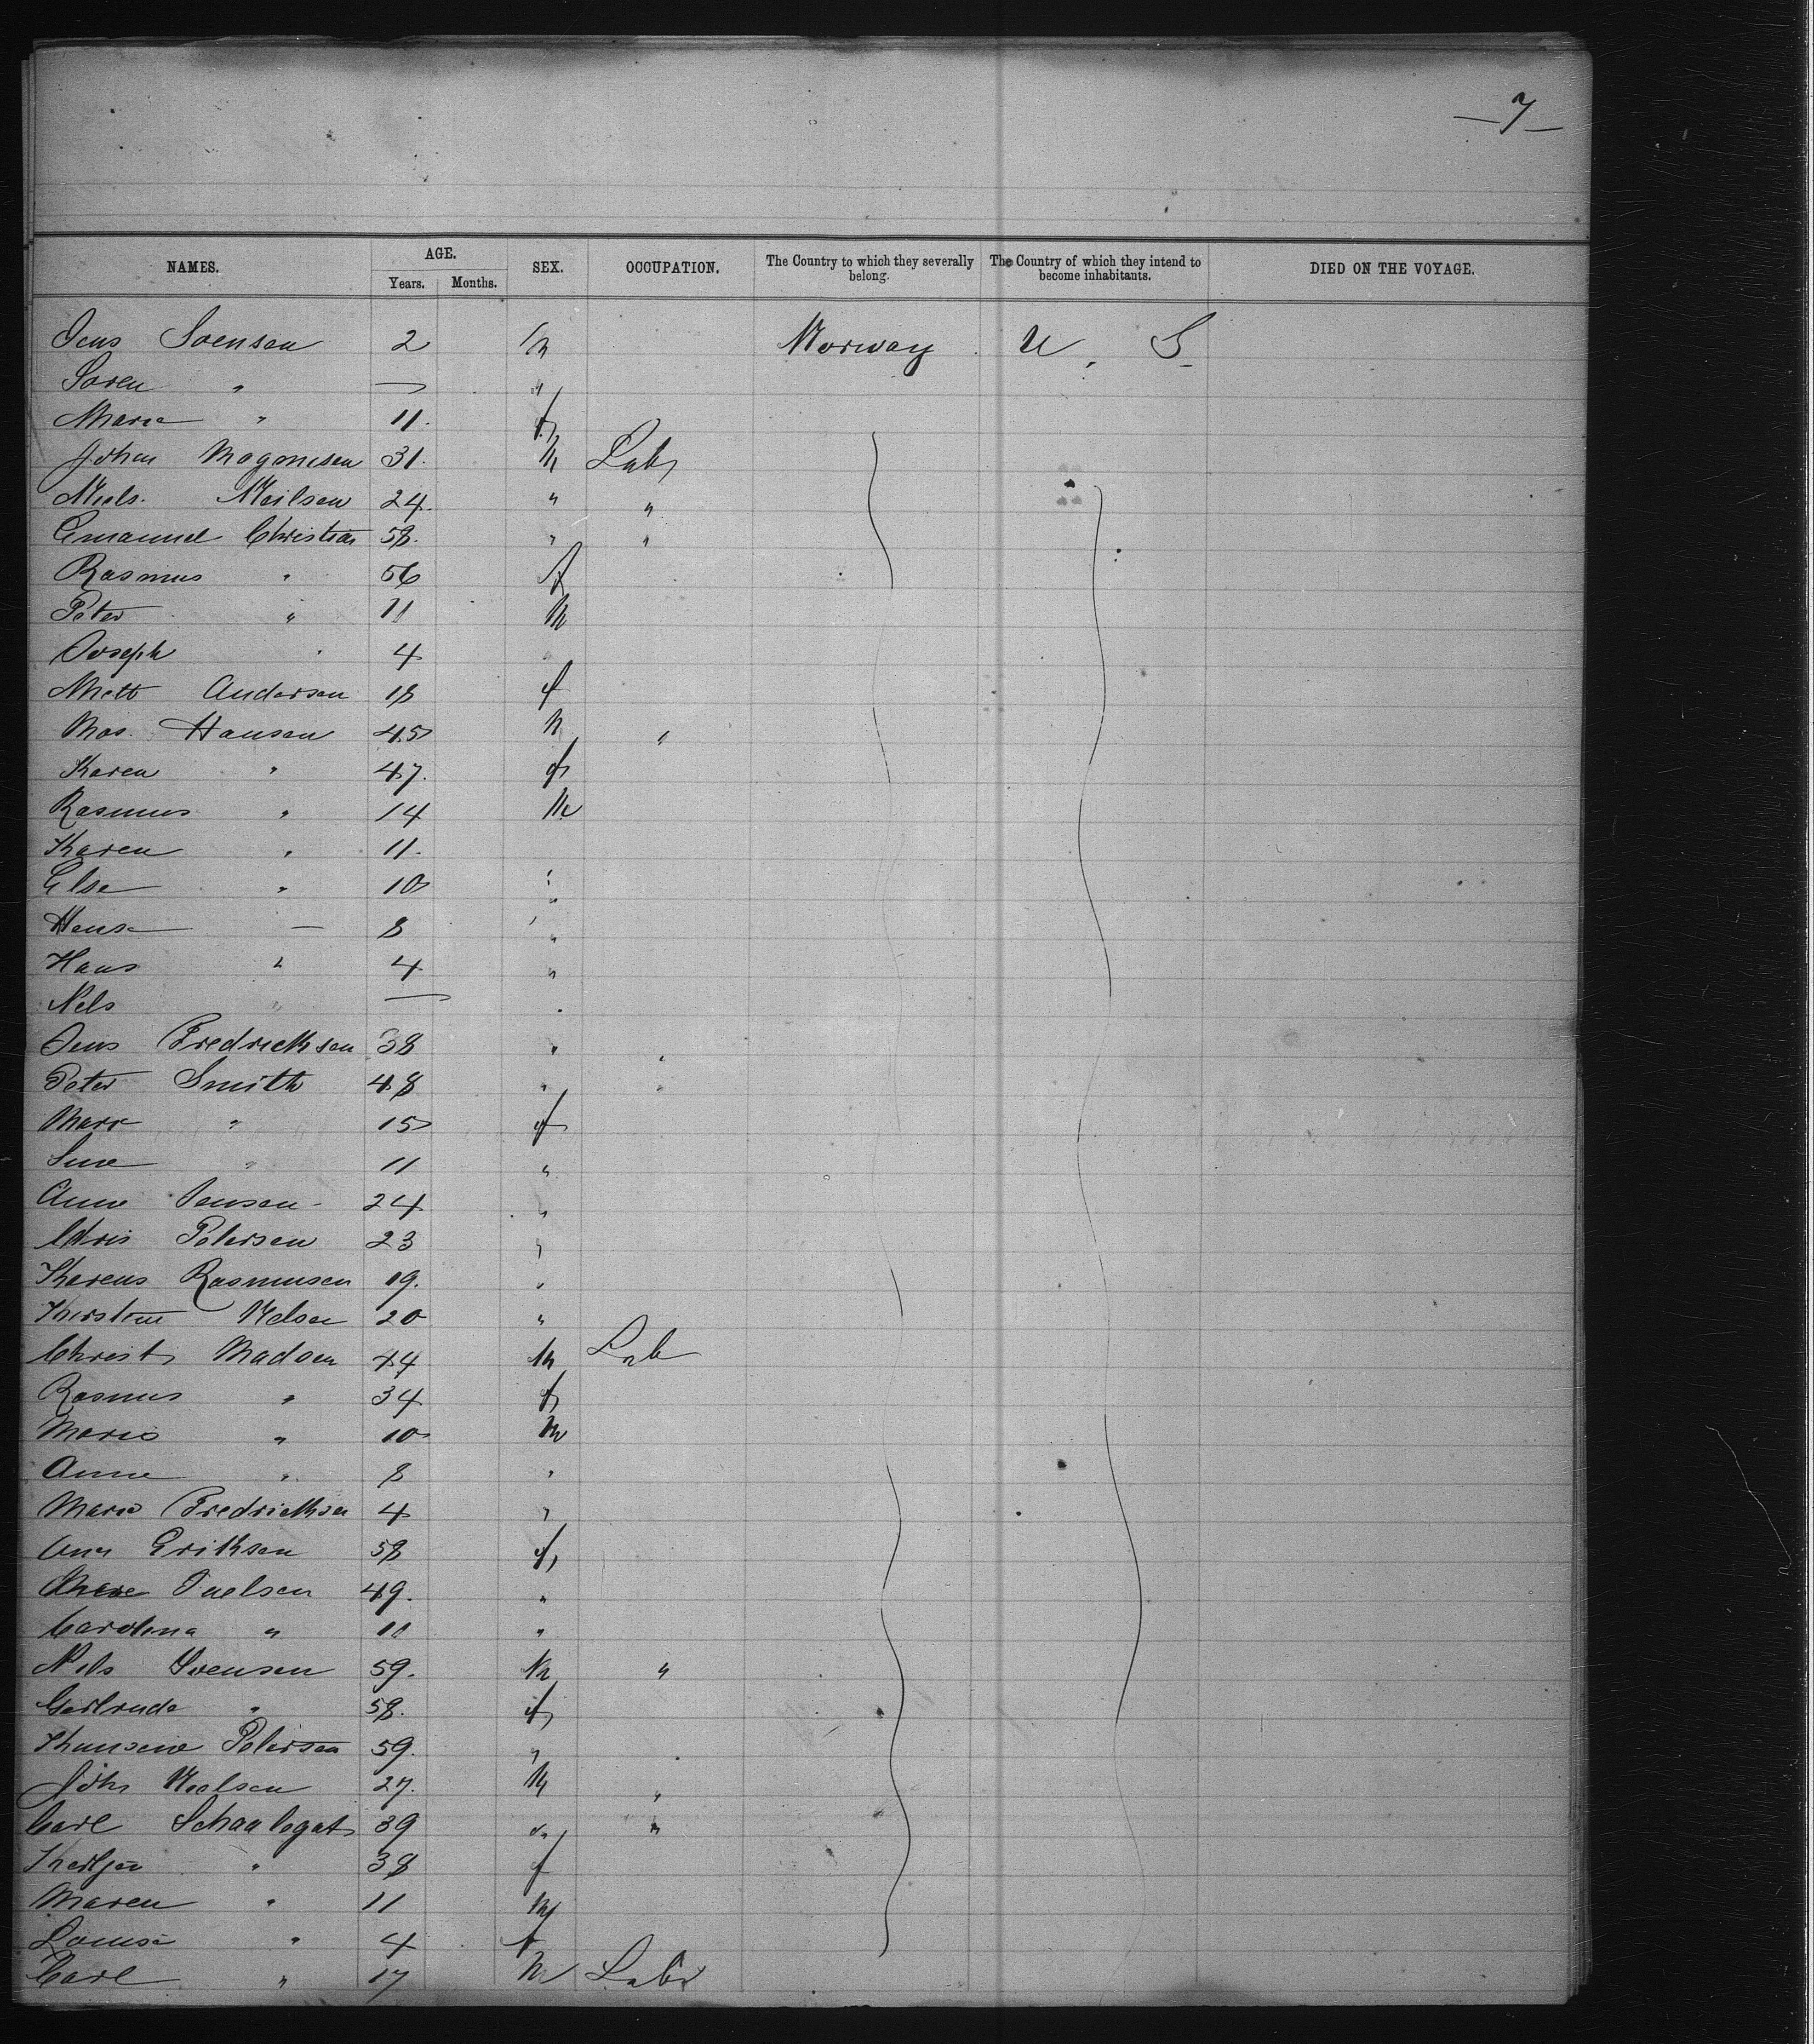 —7—
NAMES. AGE. Years. Months. SEX. OCCUPATION. The Country to which they severally belong. The Country of which they intend to become inhabitants. DIED ON THE VOYAGE.
Jens Svensen 2 M Norway U. S.
Soren " — "
Marie " 11. f
Johan Magonesen 31. M Lab
Niels. Neilsen 24. " "
Emanuel Christian 58. " "
Rasmus " 56 f
Peter " 11 M
Joseph " 4
Mett Andersen 18 f
Mas. Hansen 45 M "
Karen " 47. f
Rasmus " 14 M
Karen " 11.
Else " 10 "
Hense — 8 "
Hans " 4 "
Nels " —
Jens Fredricksen 38 " "
Peter Smith 48 " "
Mary " 15 f
Sine " 11 "
Anne Jensen 24 "
Chris Petersen 23 "
Karens Rasmusen 19. "
Kirstine Nelsen 20 "
Christ Madsen 44 M Lab
Rasmus " 34 f
Marie " 10 M
Anne " 8 "
Marie Fredricksen 4 "
Eriksen 58 f
Nelsen 49. "
Carolina " 11 "
Nils Svensen 59. M "
Gertrude " 58. f
Petersen 59. " "
John Neelsen 27. M "
Carl 39 " "
" 38 f
Maren " 11 M
Louise " 4 f
Carl " 17 M Labr